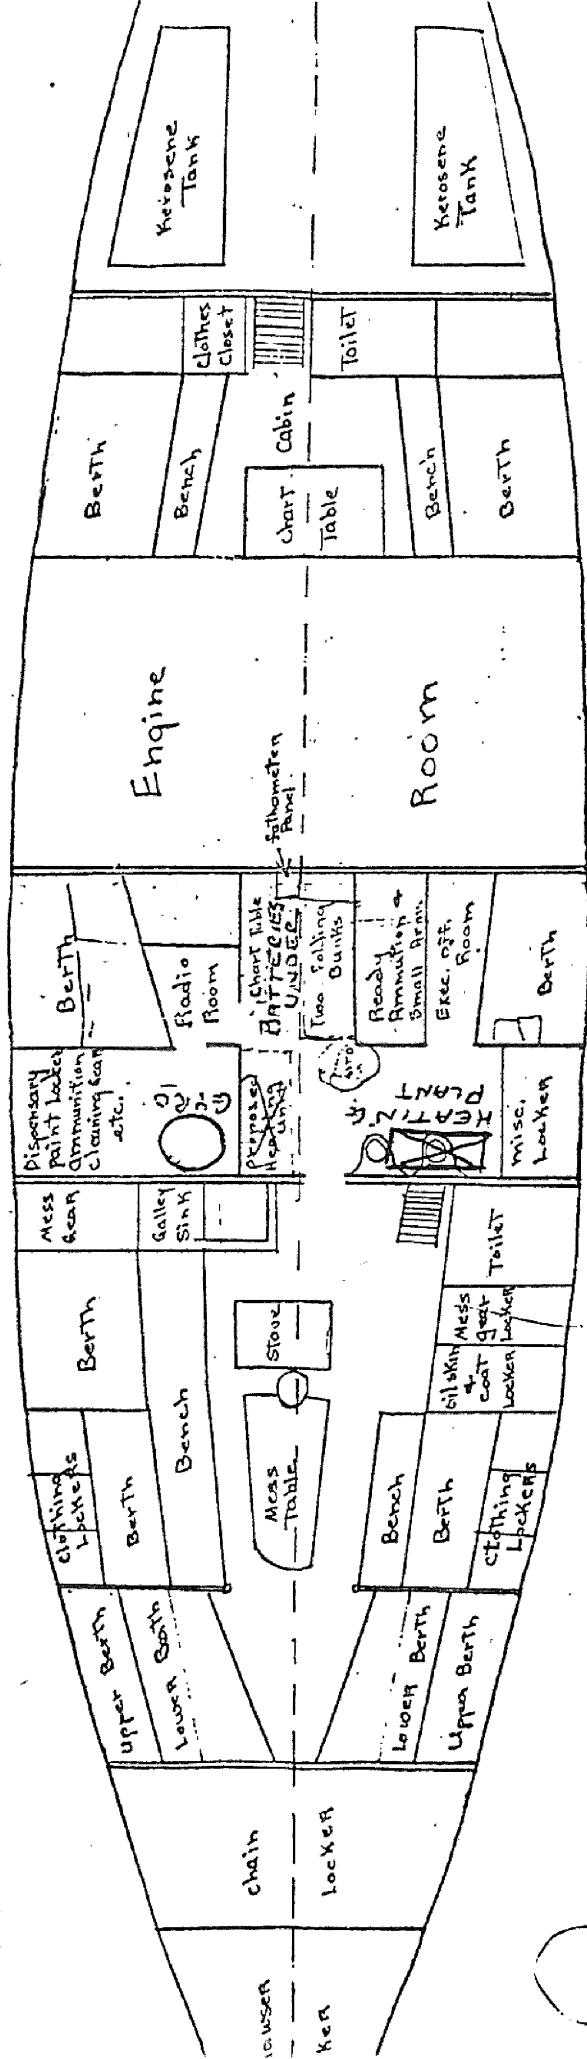 Kerosene
Tank
Kerosene
Tank
Clothes
Closet
Toilet
Berth
Bench
Cabin
Chart
Table
Bench
Berth
Engine
Room
fathometer
Panel
Berth
Radio
Room
Chart Table
BATTERIES
UNDER
Two Folding
Bunks
Ready
Ammution &
Small Arms
Exec. off.
Room
Berth
Dispensary
paint Locker
ammunition
cleaning Gear
etc.
Proposed
Heating Unit
PLANT
misc.
Locker
Mess
Gear
Galley
Sink
Toilet
Mess
gear
Locker
oilskin
&
coat
Locker
Berth
Stove
Bench
Mess
Table
Clothing
Lockers
Berth
Bench
Berth
Clothing
Lockers
Upper Berth
Lower Berth
Lower Berth
Upper Berth
chain
Locker